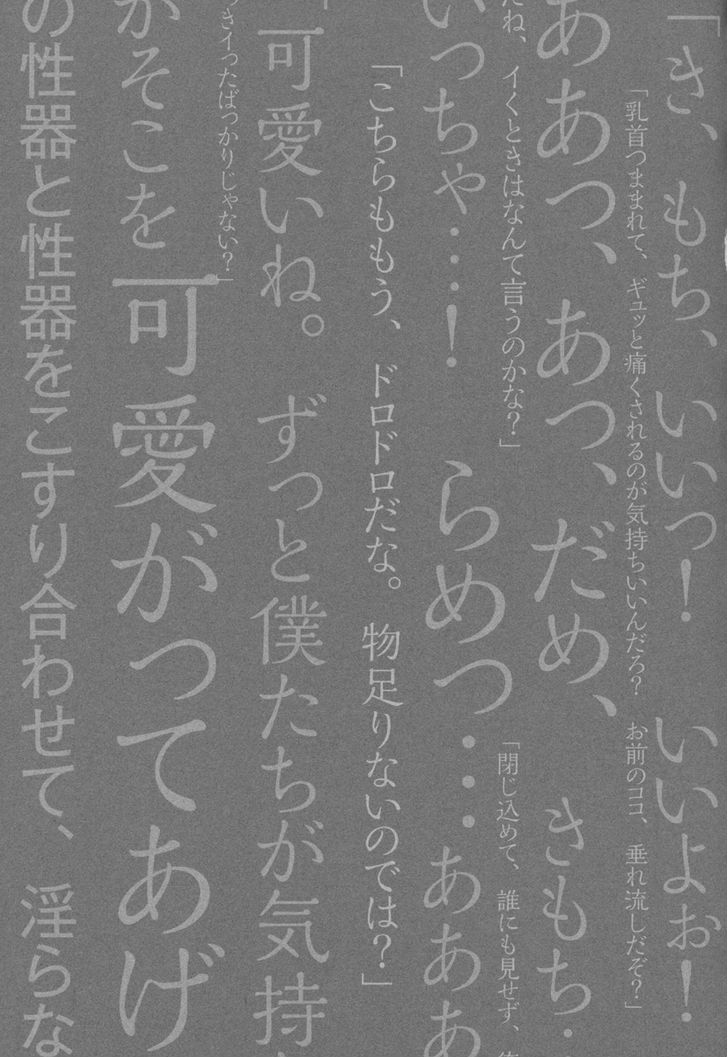 「き、もち、いいっ!　いいよぉ!
「乳首つままれて、ギュッと痛くされるのが気持ちいいんだろ?　お前のココ、垂れ流しだぞ?」
ああっ、あっ、だめ、　きもち…
だね、イくときはなんて言うのかな?」
「閉じ込めて、誰にも見せず、
いっちゃ…!　らめっ…あああ
「こちらももう、ドロドロだな。物足りないのでは?」
「可愛いね。ずっと僕たちが気持
っきイったばっかりじゃない?」
がそこを可愛がってあげ
の性器と性器をこすり合わせて、淫らな